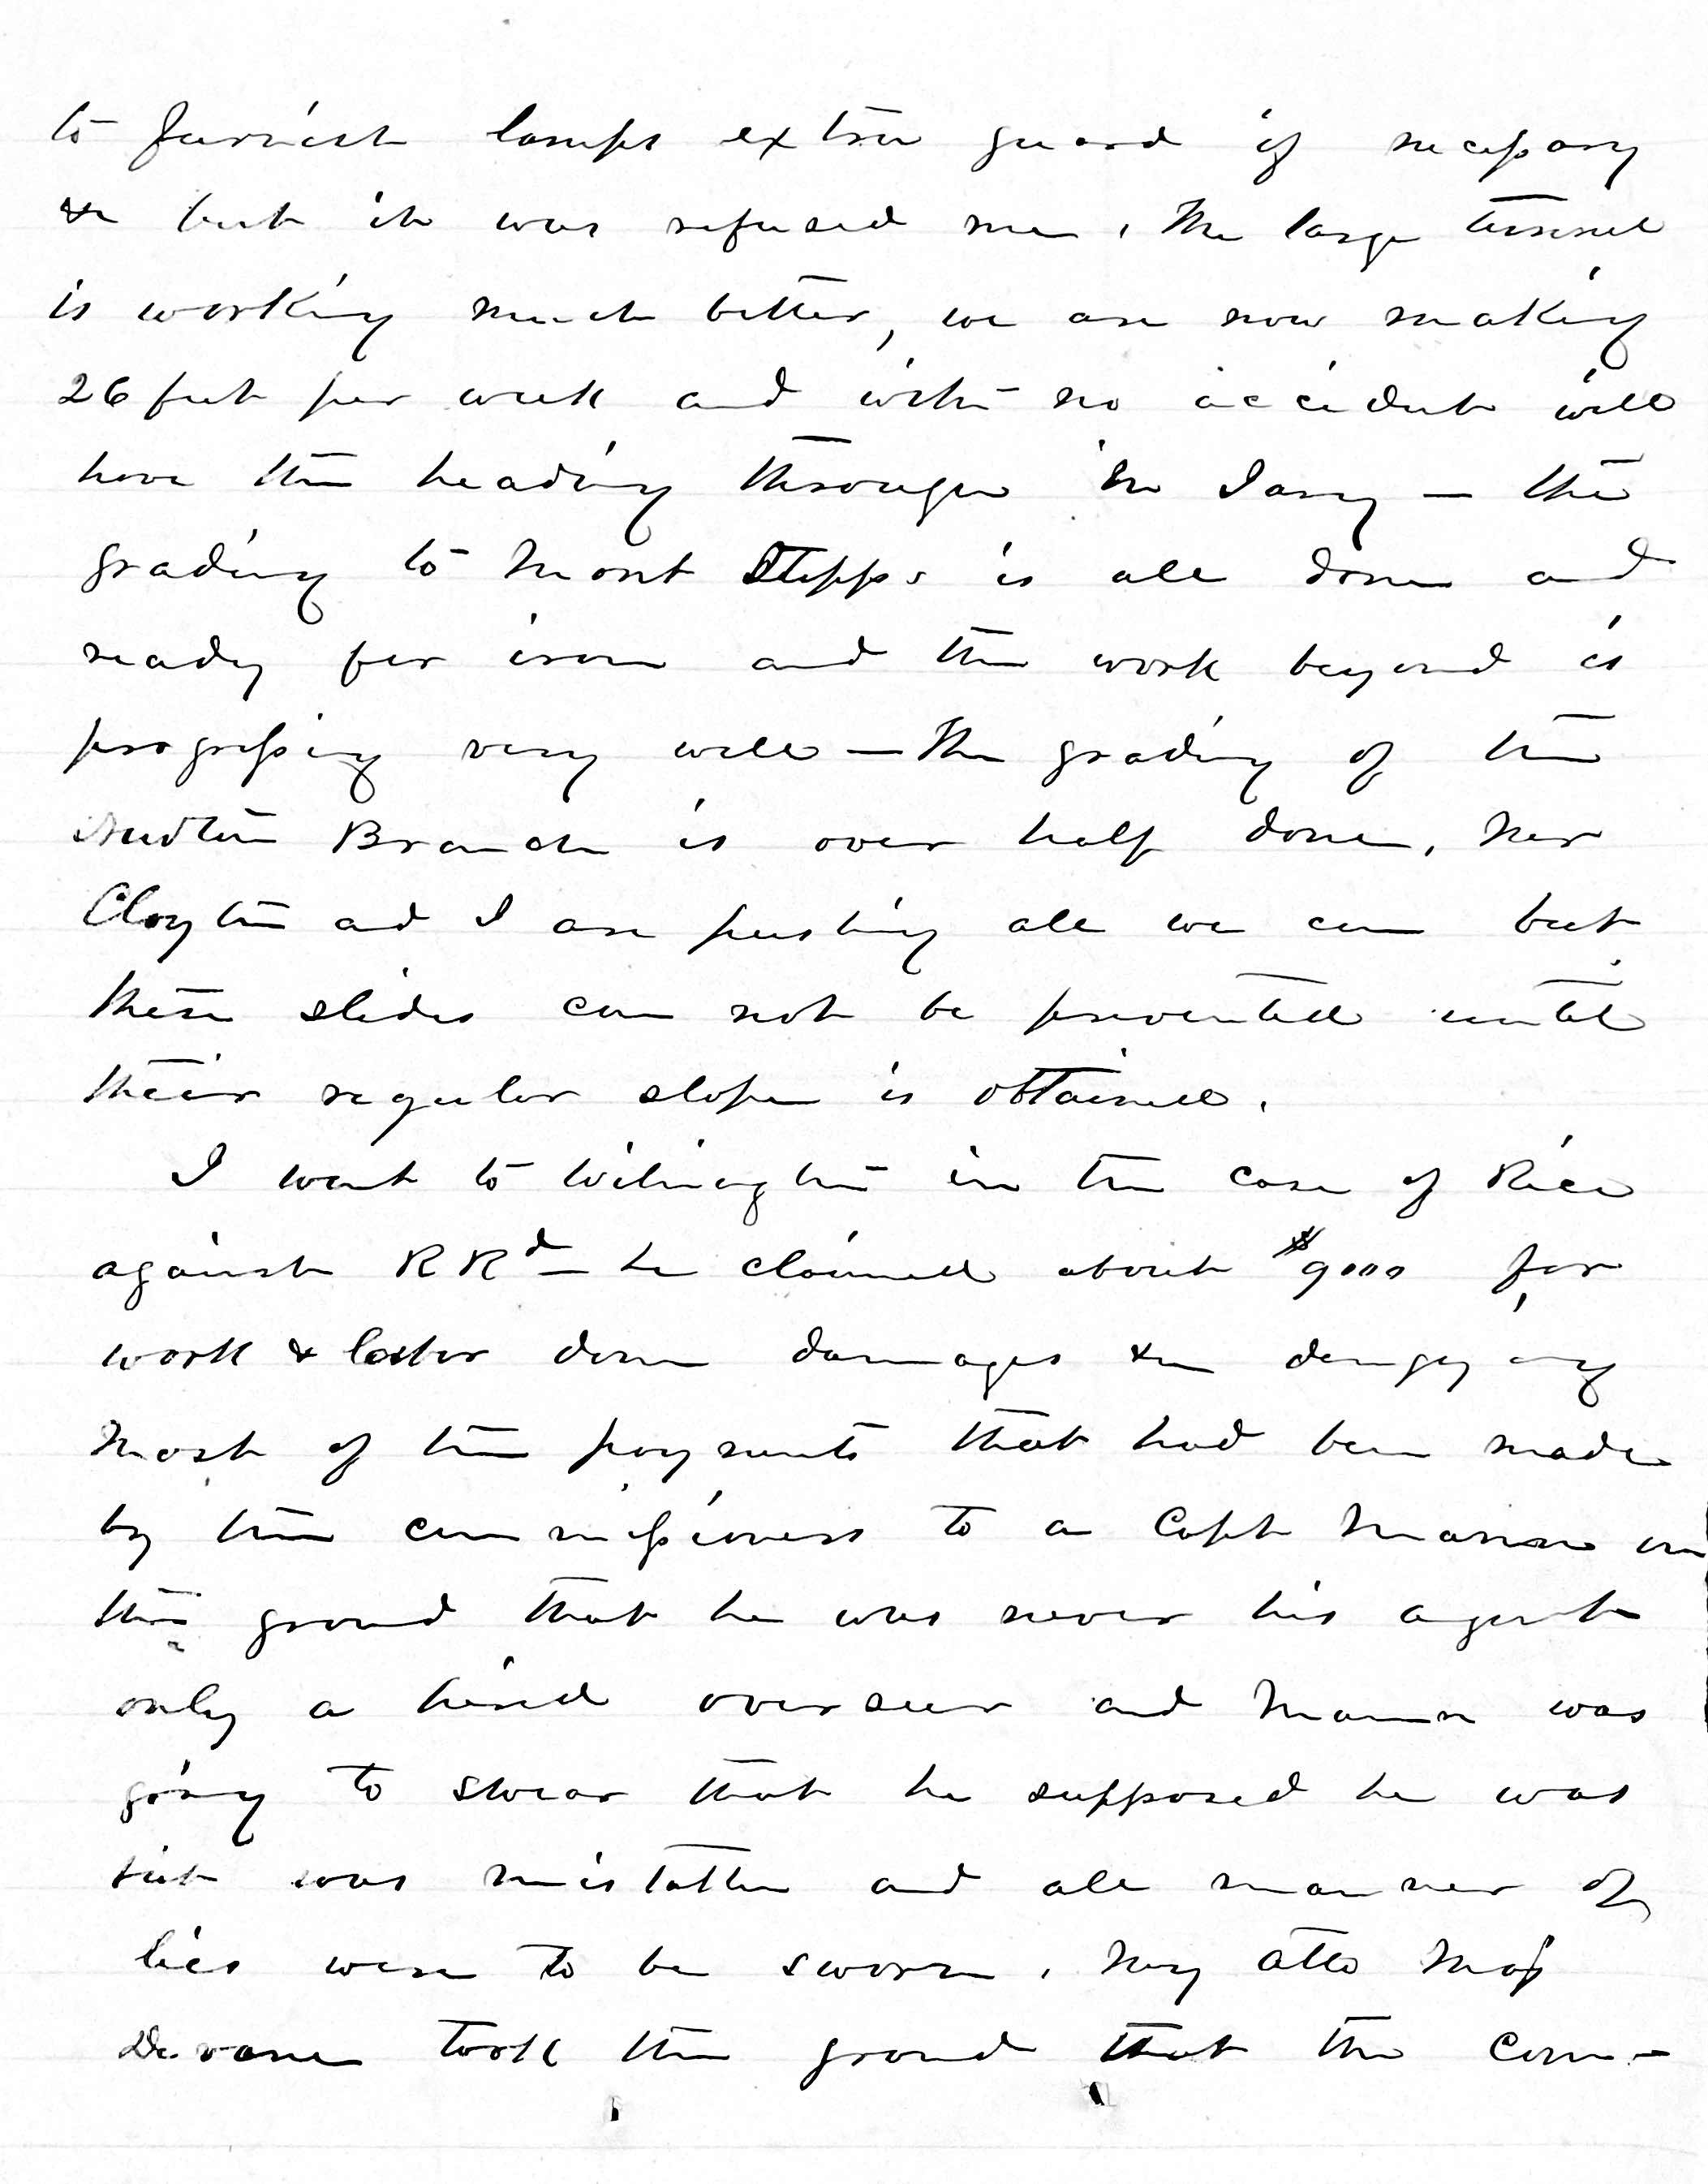 to furnish lamps extra guard if necessary
&c but it was refused me. The large tunnel
is working much better, we are now making
26 feet per week and with no accident will
have the heading through in Jany — the
grading to Mont Stepps is all done and
ready for iron and the work beyond is
progressing very well — The grading of the
Branch is over half done. Mr
Clayton and I are pushing all we can but
these slides can not be prevented until
their regular slope is obtained.
I went to Wilmington in the case of Rice
against RRd — he claimed about $9000 for
work & labor done damages &c denying
most of the payments that had been made
by the commissioners to a Capt Mann on
the ground that he was never his agent
only a hired overseer and Mann was
going to swear that he supposed he was
but was mistaken and all manner of
lies were to be sworn. My atto Maj
Devane took the ground that the Com-